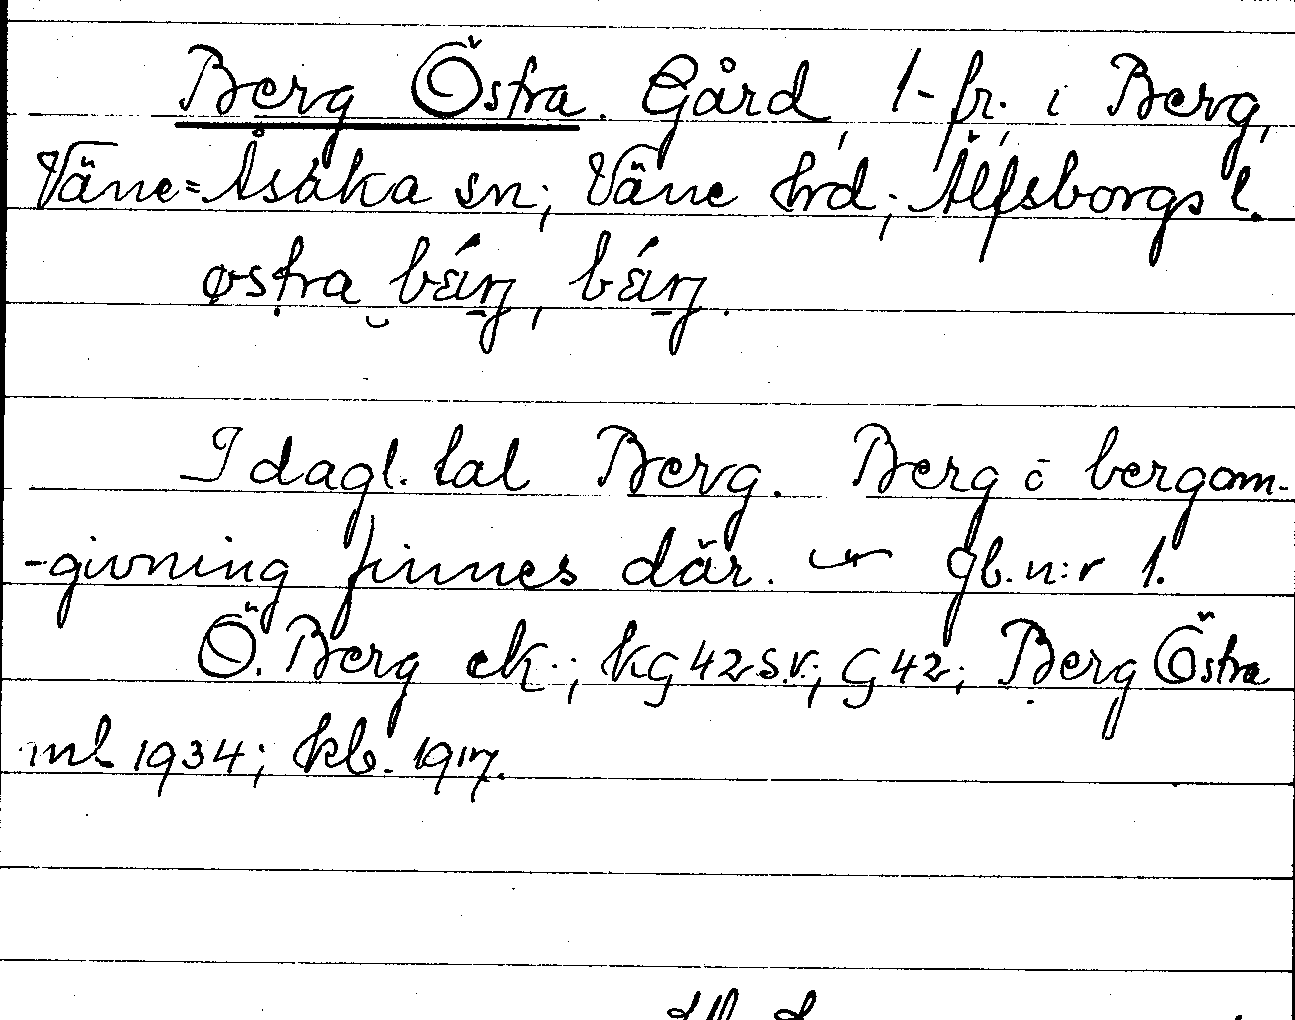 Berg Östra. Gård, 1-fr. i Berg,
Väne=Åsaka sn; Väne hrd; Älfsborgs l.
østra bę́rg, bę́rg.
I dagl. tal Berg. Berg o bergom-
-givning finnes där. gb.n:r 1.
Ö. Berg ek.; kG 42 s.v.; G 42; Berg Östra
ml 1934; kb. 1917.